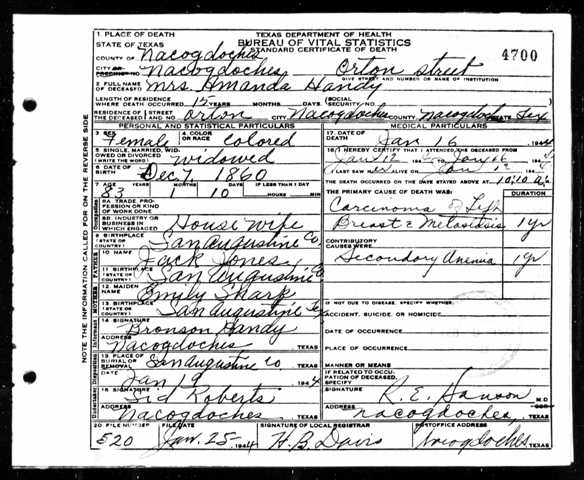 1. PLACE OF DEATH TEXAS DEPARTMENT OF HEALTH
STATE OF TEXAS BUREAU OF VITAL STATISTICS
COUNTY OF Nacogdoches STANDARD CERTIFICATE OF DEATH 4700
CITY OR PRECINCT NO. Nacogdoches Orton Street
GIVE STREET AND NUMBER OR NAME OF INSTITUTION
2. FULL NAME OF DECEASED Mrs. Amanda Handy
LENGTH OF RESIDENCE WHERE DEATH OCCURRED 15 YEARS MONTHS DAYS SOCIAL SECURITY NO.
RESIDENCE OF THE DECEASED STREET AND NO. Orton CITY Nacogdoches COUNTY Nacogdoches STATE Tex
PERSONAL AND STATISTICAL PARTICULARS
3. SEX Female 4. COLOR OR RACE Colored
5. SINGLE, MARRIED, WIDOWED OR DIVORCED (WRITE THE WORD) widowed
6. DATE OF BIRTH Dec. 7, 1860
7. AGE YEARS MONTHS DAYS IF LESS THAN 1 DAY
83 1 10 HOURS MIN.
8A. TRADE, PROFESSION OR KIND OF WORK DONE
8B. INDUSTRY OR BUSINESS IN WHICH ENGAGED House wife
9. BIRTHPLACE (STATE OR COUNTRY) San Augustine Co.
10. NAME Jack Jones
11. BIRTHPLACE (STATE OR COUNTRY) San Augustine Co
12. MAIDEN NAME Emily Sharp
13. BIRTHPLACE (STATE OR COUNTRY) San Augustine Tex
14. SIGNATURE Bronson Handy
ADDRESS Nacogdoches TEXAS
15. PLACE OF BURIAL OR REMOVAL San Augustine Co TEXAS
DATE Jan 19 1944
16. SIGNATURE Sid Roberts
ADDRESS Nacogdoches TEXAS
MEDICAL PARTICULARS
17. DATE OF DEATH Jan 16 1944
18. I HEREBY CERTIFY THAT I ATTENDED THE DECEASED FROM
Jan 12
I LAST SAW ALIVE ON
THE DEATH OCCURRED ON THE DATE STATED ABOVE AT 10:10 A.M.
THE PRIMARY CAUSE OF DEATH WAS: DURATION
Carcinoma of Left
Breast & Metastasis 1 yr
CONTRIBUTORY CAUSES WERE:
Secondary Anemia 1 yr
IF NOT DUE TO DISEASE, SPECIFY WHETHER:
ACCIDENT, SUICIDE, OR HOMICIDE
DATE OF OCCURRENCE
PLACE OF OCCURRENCE
MANNER OR MEANS
IF RELATED TO OCCUPATION OF DECEASED, SPECIFY
SIGNATURE M.D.
ADDRESS Nacogdoches, TEXAS
20. FILE NUMBER FILE DATE SIGNATURE OF LOCAL REGISTRAR POSTOFFICE ADDRESS
520 Jan. 25- 1944 H. B. Davis Nacogdoches TEXAS
NOTE THE INFORMATION CALLED FOR ON THE REVERSE SIDE